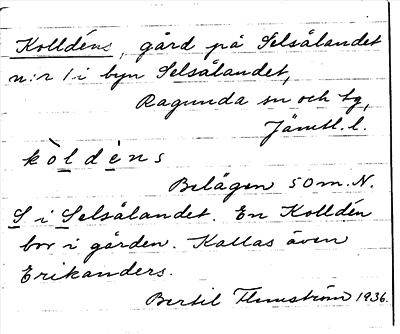 Kolldéns, gård på Selsålandet
n:r 1 i byn Selsålandet,
Ragunda sn och tg,
Jämtl. l.
kòldéns
Belägen 50 m. N.
S i Selsålandet. En Kolldén
bor i gården. Kallas även
Erikanders.
Bertil Flemström 1936.